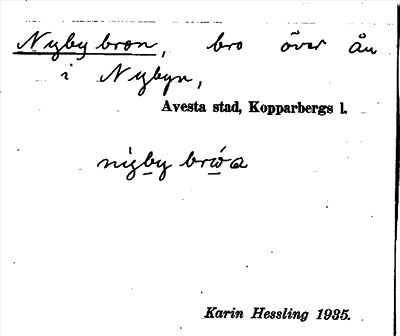 Nybybron, bro över ån
i Nybyn,
Avesta stad, Kopparbergs l.
nìgby brωa
Karin Hessling 1935.